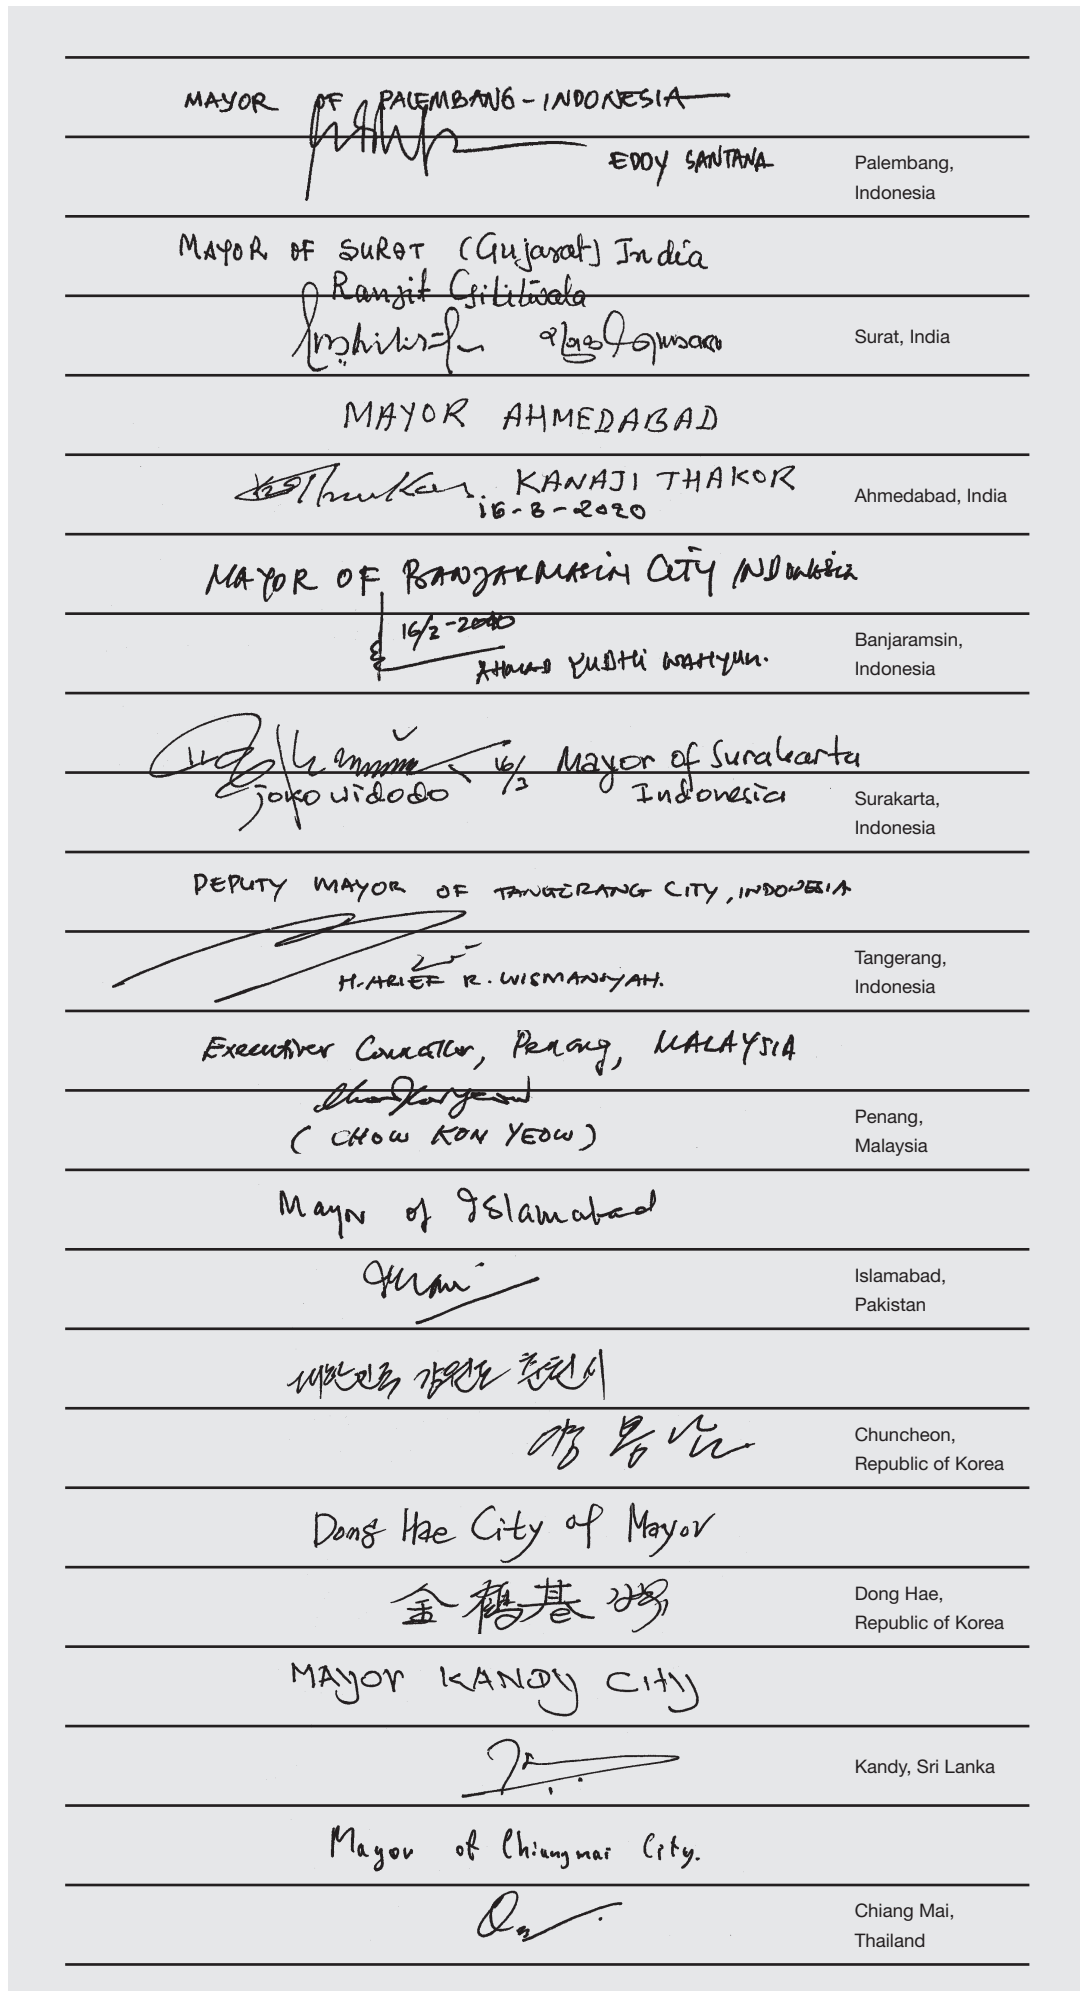 MAYOR OF PALEMBANG-INDONESIA
EDDY SANTANA
Palembang,
Indonesia
MAYOR OF SURAT (Gujarat) India
Ranjit Gilitwala
Surat, India
MAYOR AHMEDABAD
KANAJI THAKOR
Ahmedabad, India
MAYOR OF BANJARMASIN CITY INDONESIA
Banjaramsin,
Indonesia
16/3 Mayor of Surakarta
joko widodo Indonesia
Surakarta,
Indonesia
DEPUTY MAYOR OF TANGERANG CITY, INDONESIA
H. ARIEF R. WISMANSYAH.
Tangerang,
Indonesia
Penang, MALAYSIA
(CHOW KON YEOW)
Penang,
Malaysia
Mayor of Islamabad
Islamabad,
Pakistan
대한민국 강원도 춘천시
Chuncheon,
Republic of Korea
Dong Hae City of Mayor
金鶴基
Dong Hae,
Republic of Korea
MAYOR KANDY CITY
Kandy, Sri Lanka
Mayor of Chiangmai City.
Chiang Mai,
Thailand